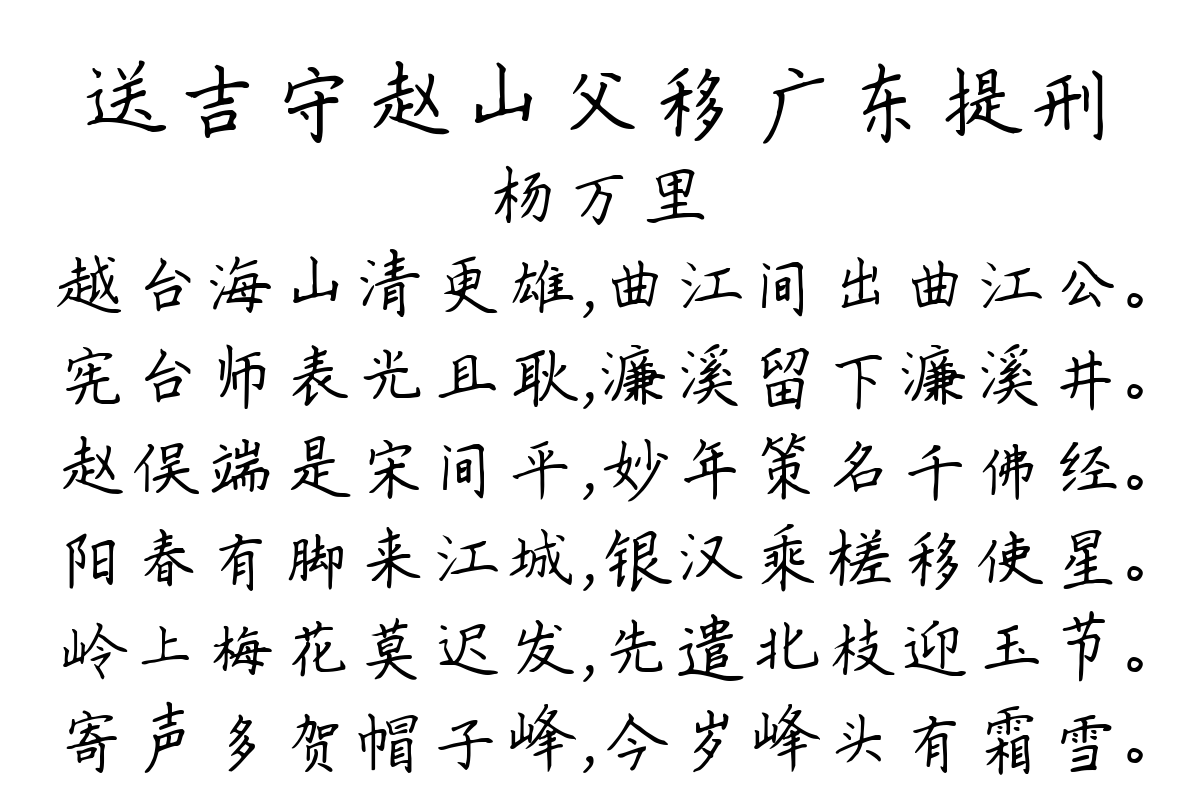 送吉守赵山父移广东提刑
杨万里
越台海山清更雄,曲江间出曲江公。
宪台师表光且耿,濂溪留下濂溪井。
赵俣端是宋间平,妙年策名千佛经。
阳春有脚来江城,银汉乘槎移使星。
岭上梅花莫迟发,先遣北枝迎玉节。
寄声多贺帽子峰,今岁峰头有霜雪。